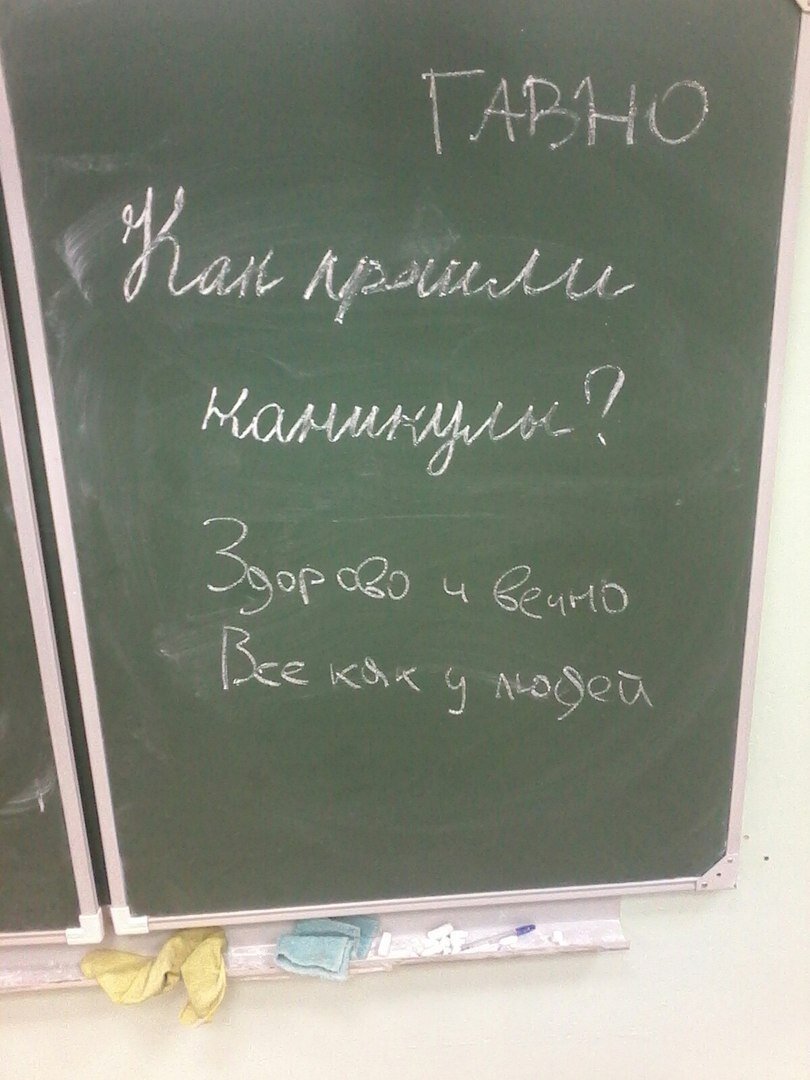 ГАВНО
Как прошли
каникулы?
Здорово и вечно
Все как у людей